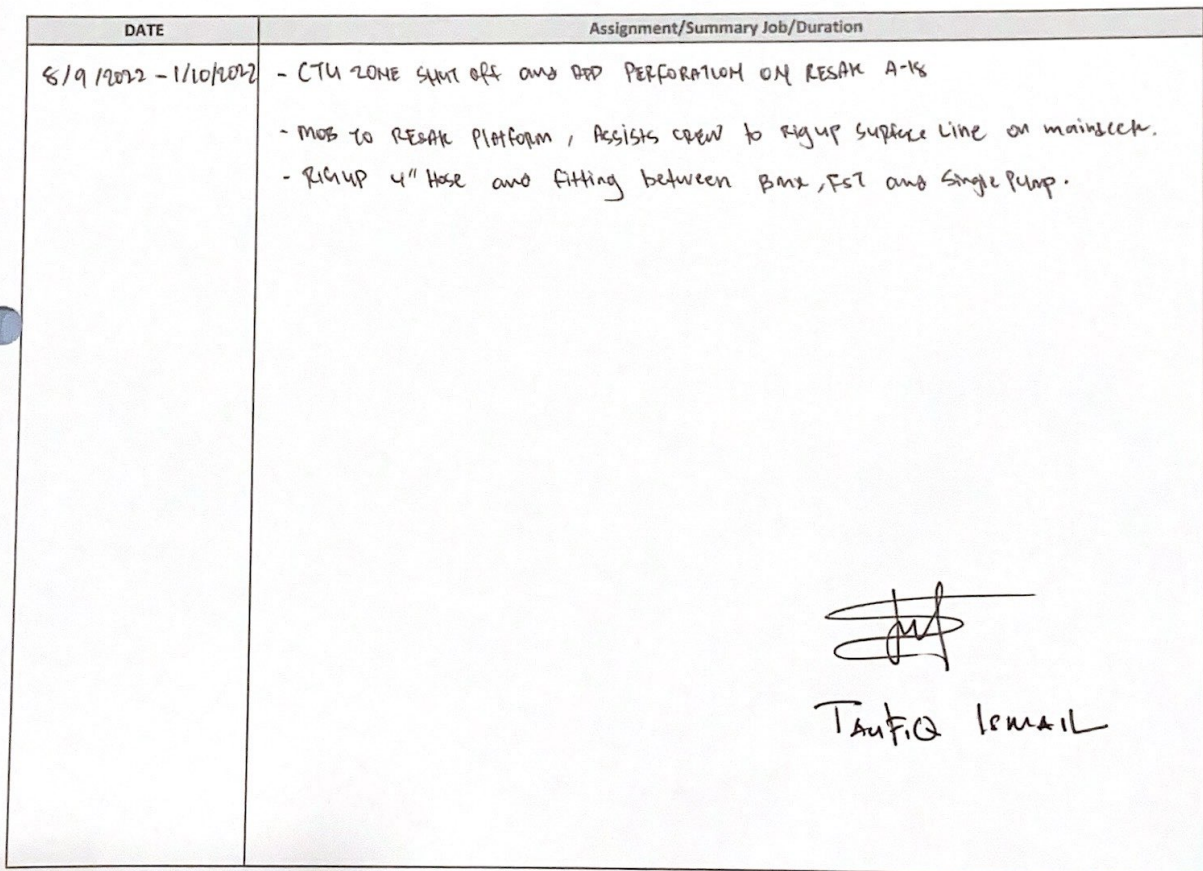 DATE
Assignment/Summary Job/Duration
8/9/2022 - 1/10/2022
- CTU ZONE SHUT OFF and ADD PERFORATION ON RESAK A-18
- MOB TO RESAK Platform, Assists crew to Rig up Surface Line on maindeck.
- RIG UP 4" Hose and fitting between Bmx, FST and Single Pump.
TAUFIQ ISMAIL